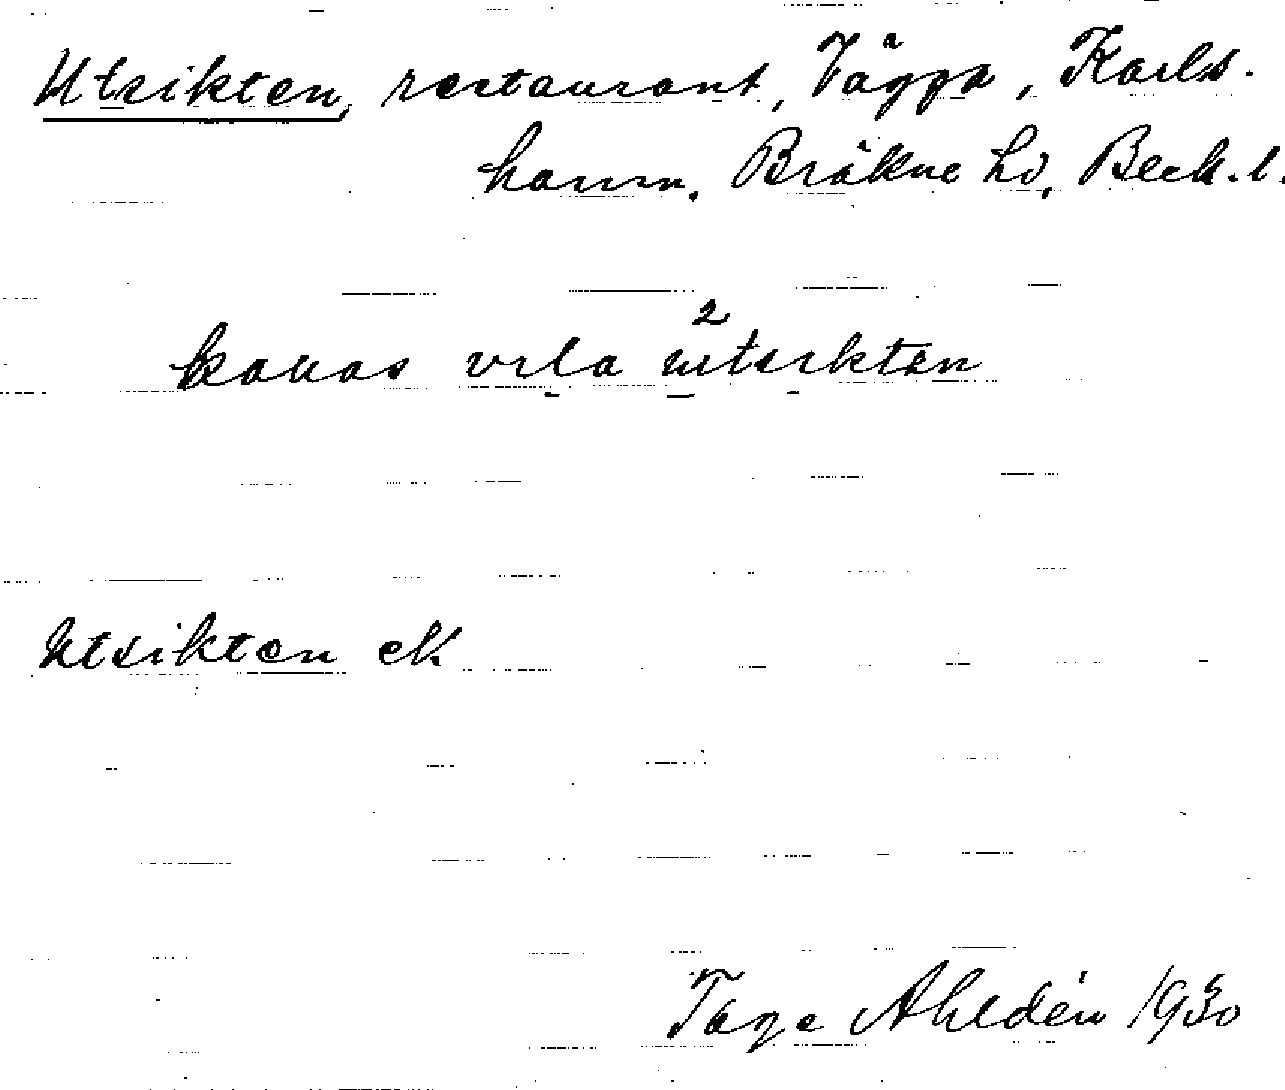 Utsikten, restaurant, Vägga, Karls-
hamn. Bräkne hd, Bleck. l.
kallas villa ²utsiktän
Utsikten ek
Tage Ahldén 1930